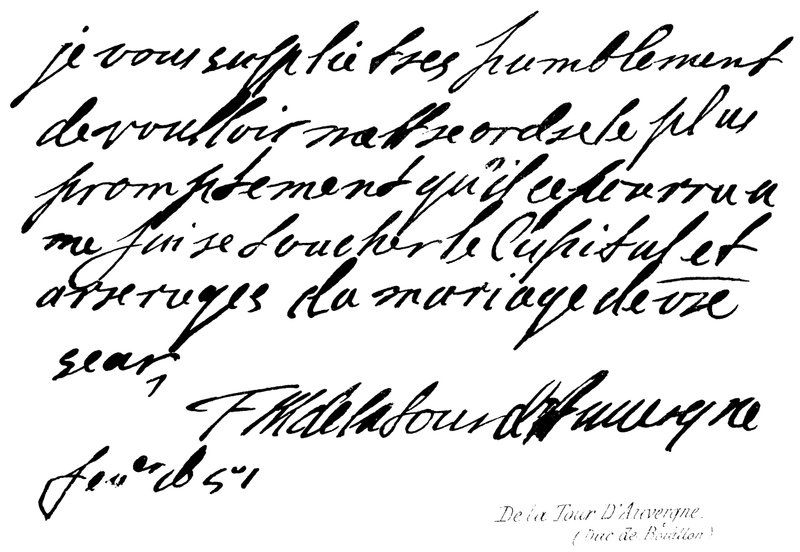 je vous suplie tres humblement
de voulloir mettre ordre le plus
promptement qu'il ce pourrua
me faire toucher le Capital et
arreruges du mariage de vre
sear
F M de la Tour d'Auvergne
feu.er 1651
De la Tour D'Auvergne.
(Duc de Bouillon)